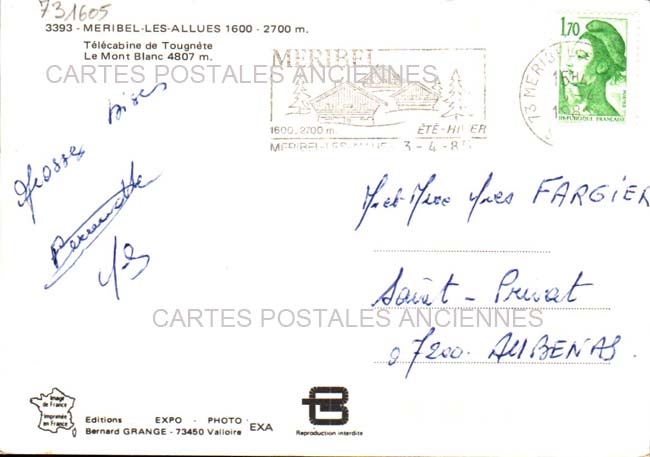 731605
3393 - MERIBEL-LES-ALLUES 1600 - 2700 m.
Télécabine de Tougnète
Le Mont Blanc 4807 m.
MERIBEL
1600, 2700 m. ÉTÉ-HIVER
MERIBEL-LES-ALLUES 3 - 4 - 8
73 MERIBEL
1,70
REPUBLIQUE FRANÇAISE
CARTES POSTALES ANCIENNES
Grosses Bises
M. et Mme Yves FARGIER
Saint - Privat
07200. AUBENAS.
CARTES POSTALES ANCIENNES
Image
de France
Imprimée
en France
Editions EXPO - PHOTO EXA
Bernard GRANGE - 73450 Valloire
Reproduction interdite